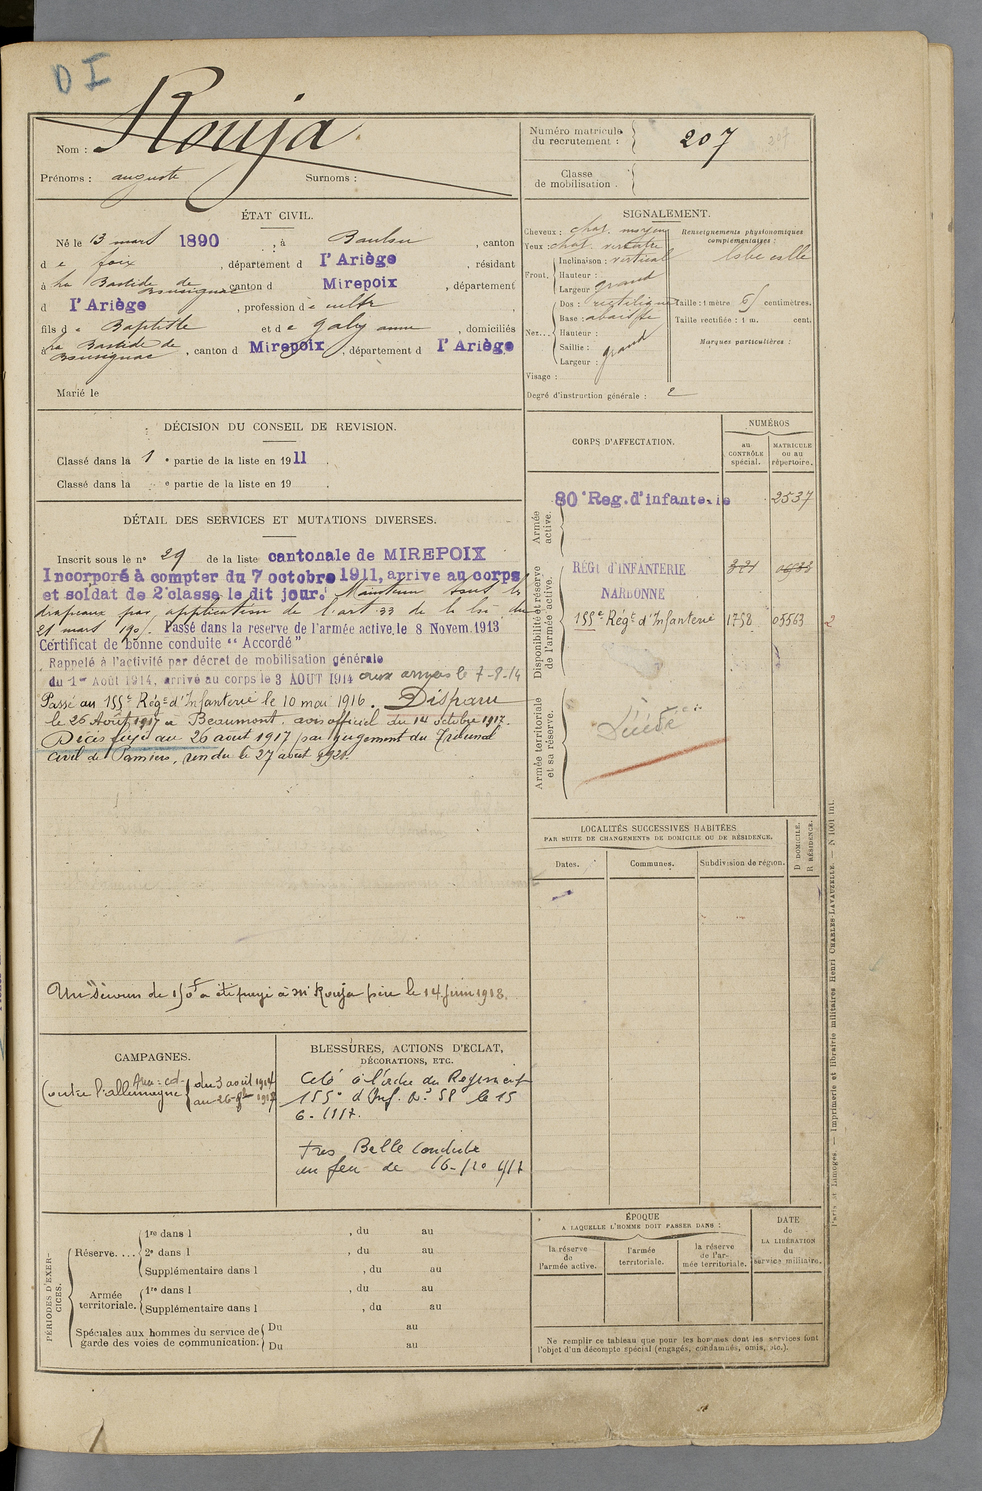 D I
Nom : Rouja
Prénoms : auguste Surnoms :
Numéro matricule du recrutement : 207
Classe de mobilisation :
ÉTAT CIVIL.
Né le 13 mars 1890, à Baulou, canton
de foix, département d l'Ariège, résidant
à La Bastide de Bousignac, canton d Mirepoix, département
d l'Ariège, profession de cultr
fils de Baptiste et de Galy anne, domiciliés
à La Bastide de Bousignac, canton d Mirepoix, département d l'Ariège
Marié le
SIGNALEMENT.
Cheveux : chat. moyen
Yeux : chat.
Front. Inclinaison : vertical
Hauteur :
Largeur : grand
Nez... Dos : rectiligne
Base : abaissée
Hauteur :
Saillie :
Largeur : grand
Visage :
Renseignements physionomiques complémentaires :
Taille : 1 mètre centimètres.
Taille rectifiée : 1 m. cent.
Marques particulières :
Degré d'instruction générale : 2
DÉCISION DU CONSEIL DE REVISION.
Classé dans la 1 e partie de la liste en 1911.
Classé dans la e partie de la liste en 19 .
CORPS D'AFFECTATION.
NUMÉROS
au CONTRÔLE spécial.
MATRICULE ou au répertoire.
Armée active.
80e Reg. d'infanterie 2537
Disponibilité et réserve de l'armée active.
RÉGt d'INFANTERIE
NARBONNE
155e Régt d'Infanterie 1758 05563
Armée territoriale et sa réserve.
DÉTAIL DES SERVICES ET MUTATIONS DIVERSES.
Inscrit sous le n° 29 de la liste cantonale de MIREPOIX
Incorporé à compter du 7 octobre 1911, arrive au corps
et soldat de 2e classe le dit jour. Maintenu sous les
drapeaux par application de l'art 33 de la loi du
21 mars 1905. Passé dans la reserve de l'armée active, le 8 Novem. 1913
Certificat de bonne conduite "Accordé"
Rappelé à l'activité par décret de mobilisation générale
du 1er Août 1914, arrivé au corps le 3 AOUT 1914 aux armées le 7-8-14
Passé au 155e Régt d'Infanterie le 10 mai 1916. Disparu
le 26 Août 1917 à Beaumont. avis officiel du 14 octobre 1917.
Décès fixé au 26 août 1917 par jugement du Tribunal
civil de Pamiers, rendu le 27 août 1921.
Un secours de 150f a été payé à Mr Rouja père le 14 juin 1918.
LOCALITÉS SUCCESSIVES HABITÉES
PAR SUITE DE CHANGEMENTS DE DOMICILE OU DE RÉSIDENCE.
Dates. Communes. Subdivision de région. D DOMICILE. R RÉSIDENCE.
CAMPAGNES.
Contre l'allemagne du 3 août 1914
BLESSURES, ACTIONS D'ÉCLAT,
DÉCORATIONS, ETC.
Cité à l'ordre du Regiment
155e d'Inf. N° 58 le 15
6. 1917.
Tres Belle conduite
au feu
PÉRIODES D'EXERCICES.
Réserve.... 1re dans l , du au
2e dans l , du au
Supplémentaire dans l , du au
Armée territoriale. 1re dans l , du au
Supplémentaire dans l , du au
Spéciales aux hommes du service de garde des voies de communication. Du au
Du au
ÉPOQUE
A LAQUELLE L'HOMME DOIT PASSER DANS :
la réserve de l'armée active.
l'armée territoriale.
la réserve de l'armée territoriale.
DATE de LA LIBÉRATION du service militaire.
Ne remplir ce tableau que pour les hommes dont les services font
l'objet d'un décompte spécial (engagés, condamnés, omis, etc.).
Paris et Limoges. — Imprimerie et librairie militaires Henri CHARLES-LAVAUZELLE. — N° 1001 int.